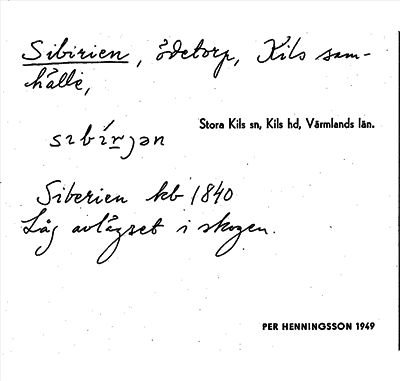 Sibirien, ödetorp, Kils sam-
hälle,
Stora Kils sn, Kils hd, Värmlands län.
sıbírjən
Siberien kb 1840
Låg avlägset i skogen.
PER HENNINGSSON 1949